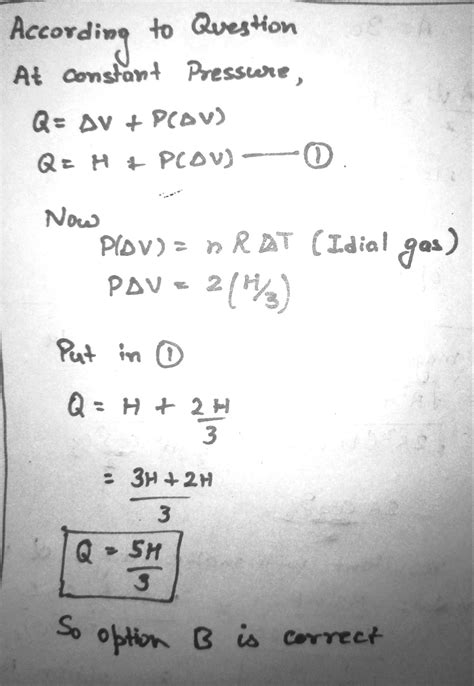 According to Question
At constant Pressure,
Q = ΔV + P(ΔV)
Q = H + P(ΔV) — ①
Now
P(ΔV) = n R ΔT (Idial gas)
PΔV = 2(H/3)
Put in ①
Q = H + 2H/3
= 3H + 2H/3
Q = 5H/3
So option B is correct